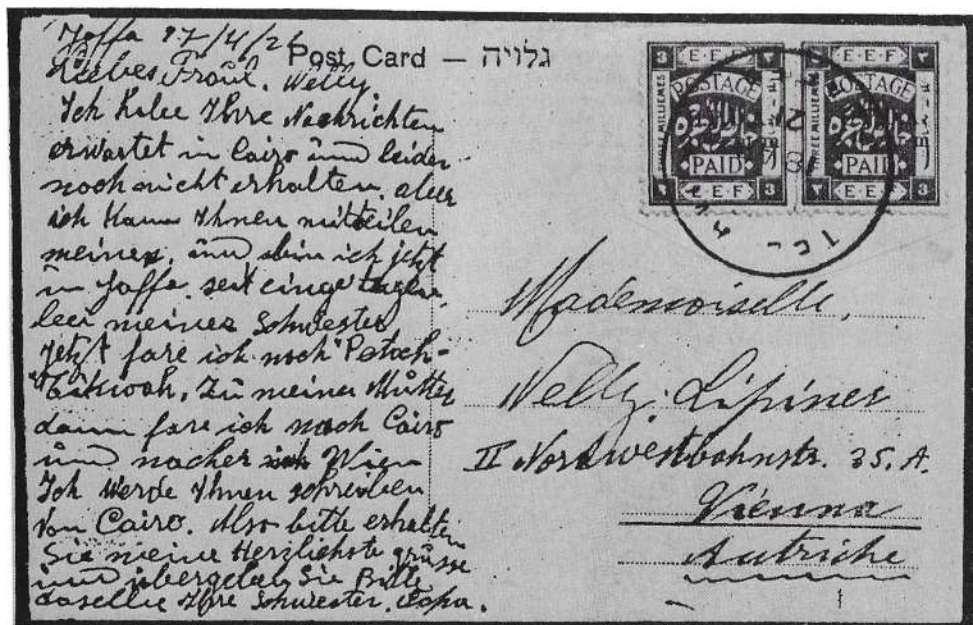 Joffa 17/4/21
Post Card — גלויה
Liebes Fräul. Nelly.
Ich habe Ihre Nachrichten
erwartet in Cairo und leider
noch nicht erhalten. aber
ich kann Ihnen mitteilen
meinen, und bin ich jetzt
in Joffa, seit einge tagen
bei meiner Schwester
Jetzt fare ich noch "Petach-
Tikwah, zu meiner Mutter
dann fare ich nach Cairo
und nacher Wien
Ich werde Ihnen schreiben
von Cairo. Also bitte erhalten
Sie meine Herzlichste grüsse
und übergeben Sie Bitte
daselbe Ihre Schwester.
E·E·F
POSTAGE
PAID
E·E·F
3
THREE MILLIEMES
E·E·F
POSTAGE
PAID
E·E·F
3
THREE MILLIEMES
Mademoiselle,
Nelly: Lipiner
II Nordwestbahnstr. 35. A.
Vienna
Autriche